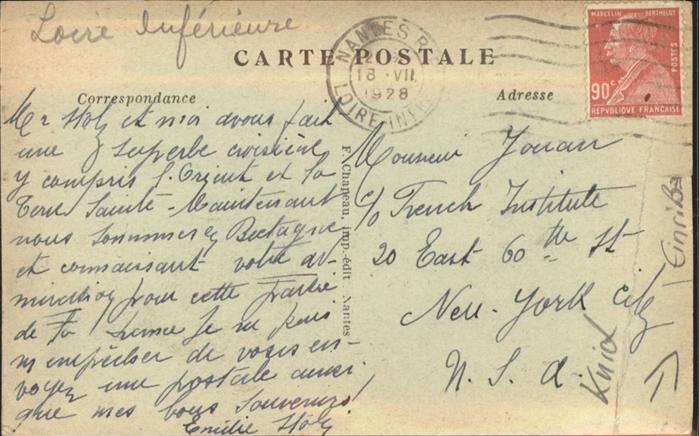 Loire Inférieure
CARTE POSTALE
NANTES R.P.
18 · VII
1928
LOIRE-INFRE
MARCELIN BERTHELOT
POSTES
90c
REPUBLIQUE FRANÇAISE
Correspondance
Mr Stoly et moi avons fait
une superbe croisière
y compris l'Orient et la
Terre Sainte - Maintenant
nous sommes en Bretagne
et connaissant votre ad-
miration pour cette partie
de la France je ne puis
m'empêcher de vous en-
voyer une postale ainsi
que mes bons souvenirs!
Emilie Stoly
F. Chapeau, imp.-édit., Nantes
Adresse
Monsieur Jouan
c/o French Institute
20 East 60th St
New-York City
U. S. A.